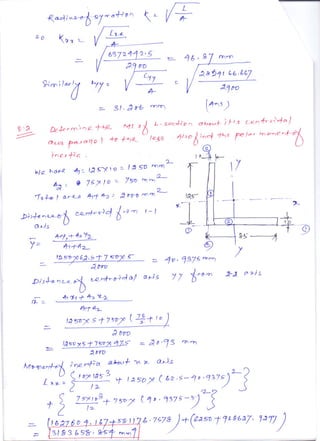 Radius of gyration K = √(I/A)
so Kxx = √(Ixx/A)
= √(6372442.5/2900) = 46.87 mm
Similarly Kyy = √(Iyy/A) = √(2841 66.667/2900)
= 31.306 mm (Ans)
8.2 Determine the MI of L-section about its centroidal
axis parallel to the legs. Also find the polar moment of
inertia.
We have A1 = 125×10 = 1250 mm2
A2 = 75×10 = 750 mm2
Total area A1+A2 = 2000 mm2
Distance of centroid from 1-1
axis
ȳ = A1y1+A2y2 / A1+A2
= 1250×62.5+750×5 / 2000 = 40.9375 mm
Distance of centroidal axis YY from 2-2 axis
x̄ = A1x1+A2x2 / A1+A2
= 1250×5+750×(75/2+10) / 2000
= 1250×5+750×47.5 / 2000 = 20.93 mm
Moment of inertia about xx axis
Ixx = {10×125^3/12 + 1250×(62.5-40.9375)^2}
+ {75×10^3/12 + 750×(40.9375-5)^2}
= (1627604.167+581176.7578)+(6250+968627.9297)
= 3183658.854 mm4